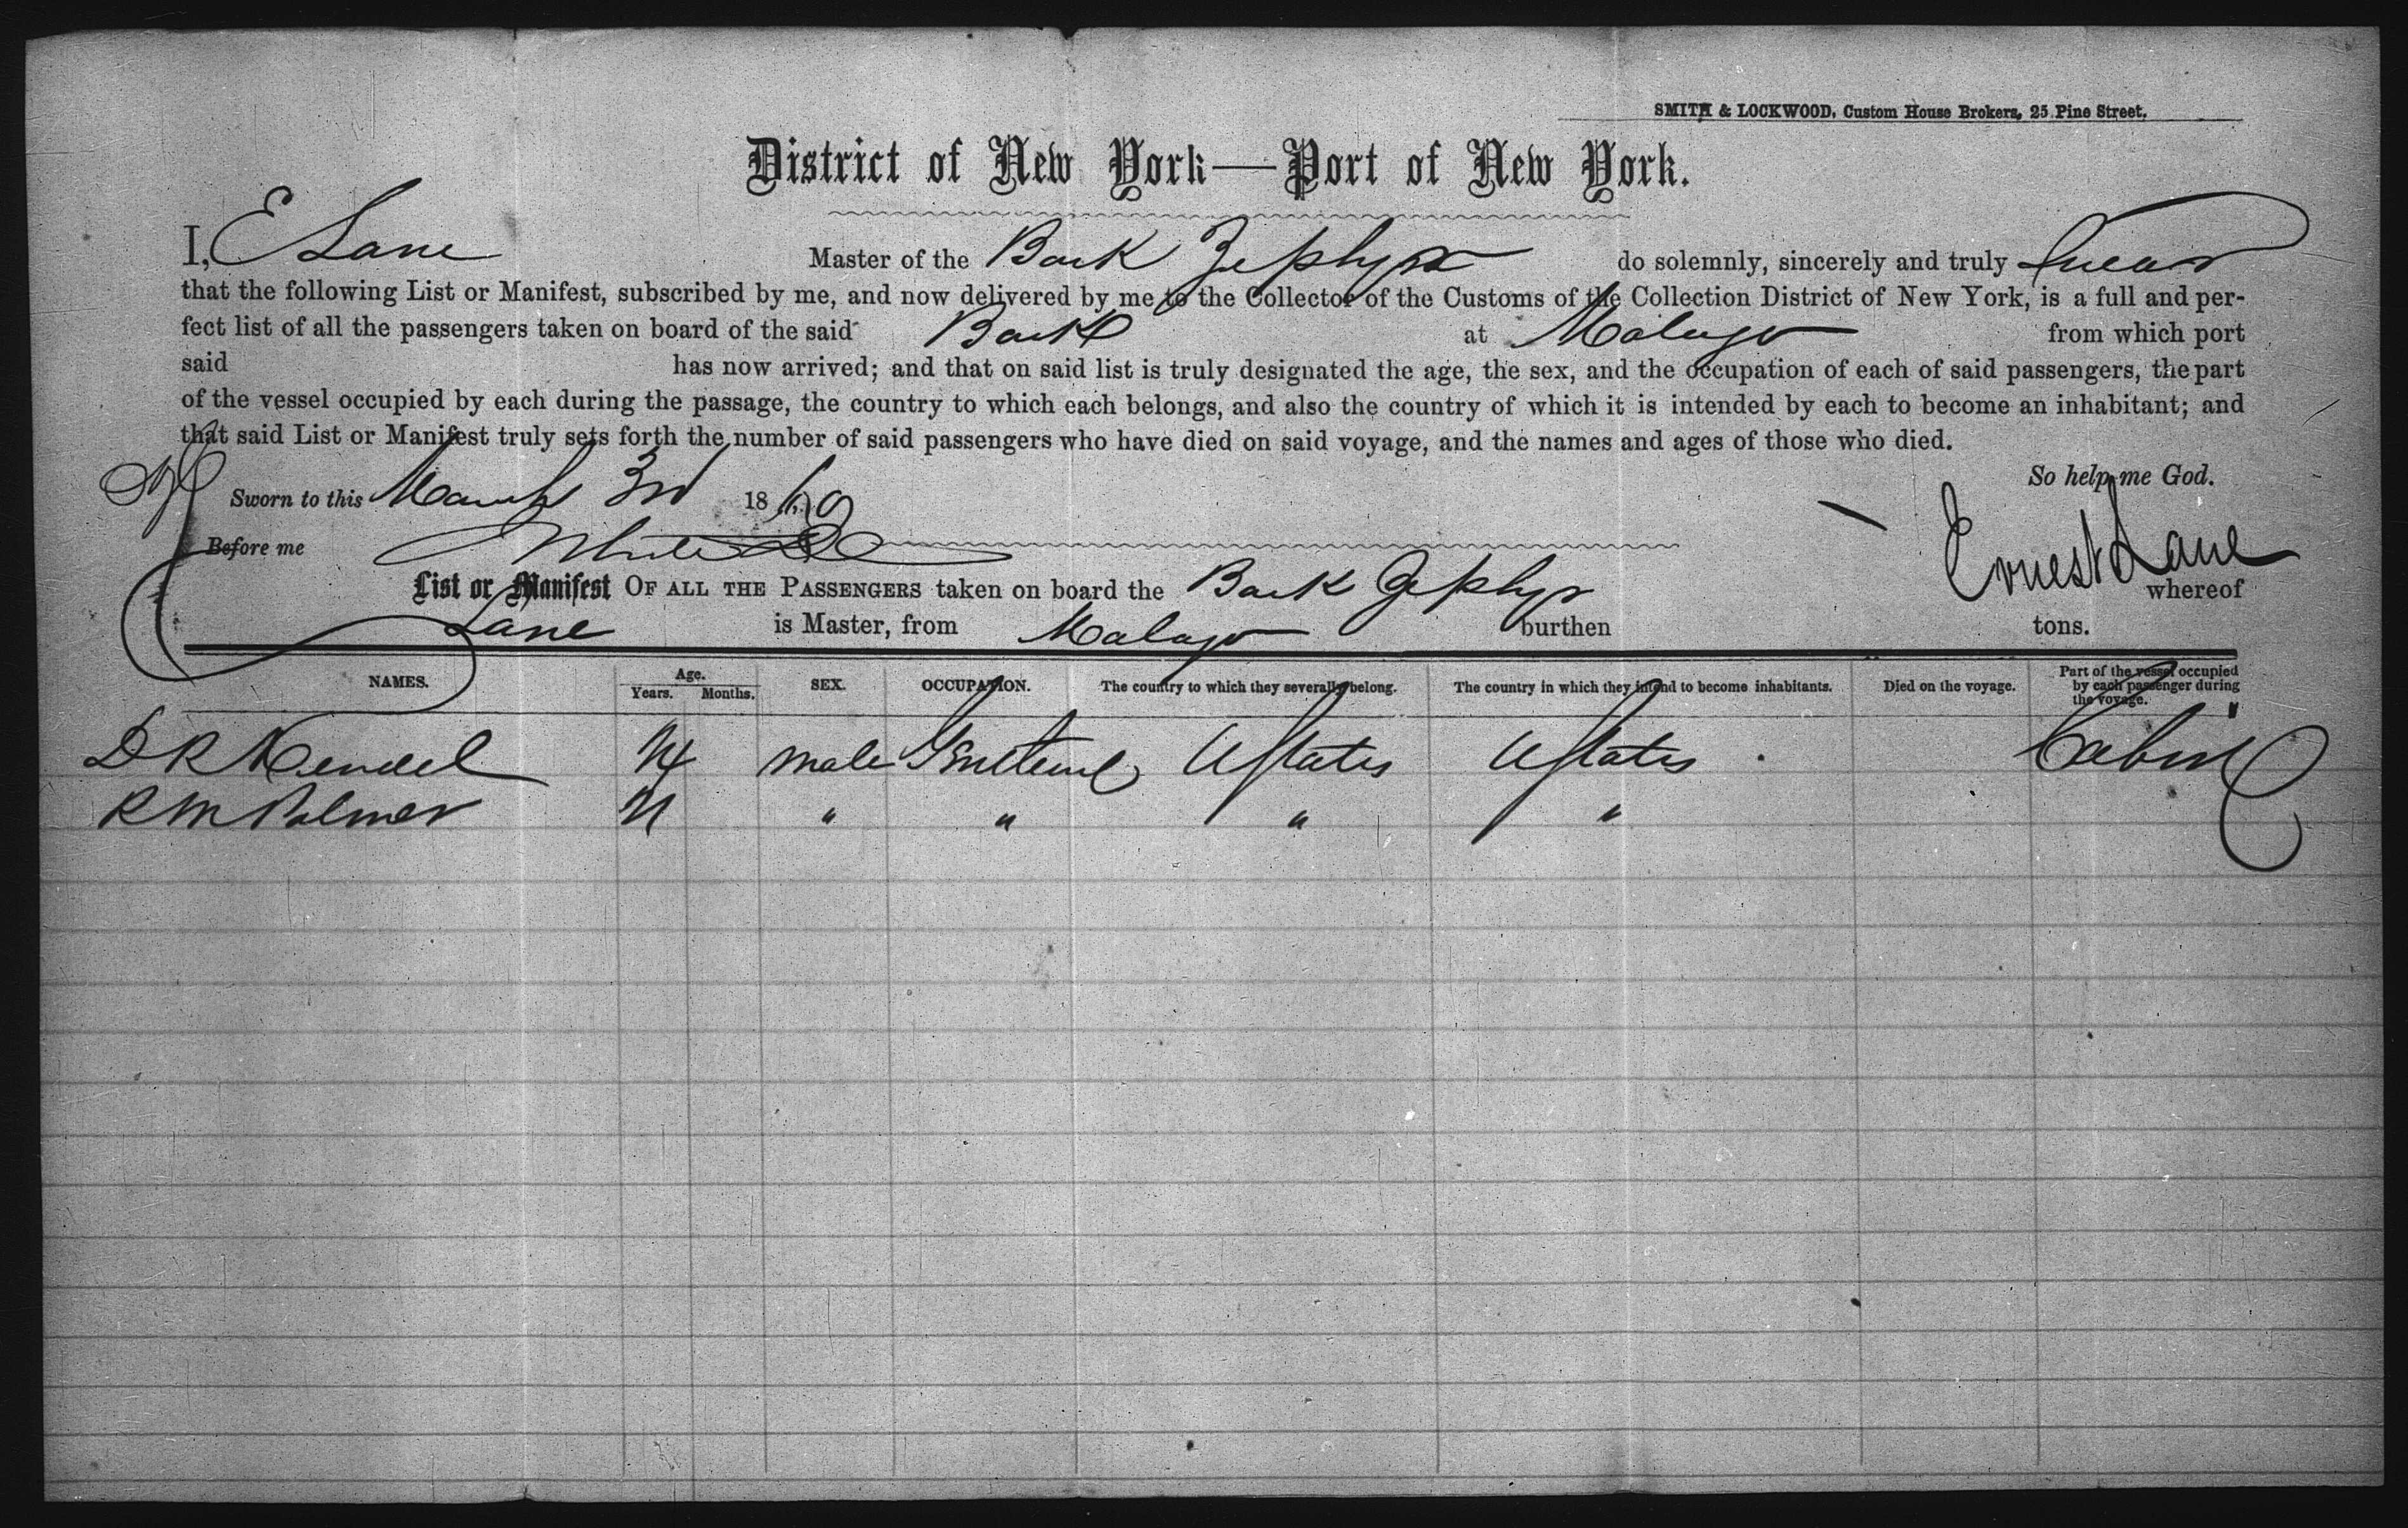 SMITH & LOCKWOOD, Custom House Brokers, 25 Pine Street.
District of New York—Port of New York.
I, E Lane Master of the Bark Zephyr do solemnly, sincerely and truly swear
that the following List or Manifest, subscribed by me, and now delivered by me to the Collector of the Customs of the Collection District of New York, is a full and per-
fect list of all the passengers taken on board of the said Bark at Malaga from which port
said has now arrived; and that on said list is truly designated the age, the sex, and the occupation of each of said passengers, the part
of the vessel occupied by each during the passage, the country to which each belongs, and also the country of which it is intended by each to become an inhabitant; and
that said List or Manifest truly sets forth the number of said passengers who have died on said voyage, and the names and ages of those who died.
So help me God.
Sworn to this March 3rd 1869
Ernest Lane
Before me
List or Manifest OF ALL THE PASSENGERS taken on board the Bark Zephyr whereof
Lane is Master, from Malaga burthen tons.
NAMES. Age. Years. Months. SEX. OCCUPATION. The country to which they severally belong. The country in which they intend to become inhabitants. Died on the voyage. Part of the vessel occupied by each passenger during the voyage.
D R male UStates UStates Cabin
R M Palmer " " " "